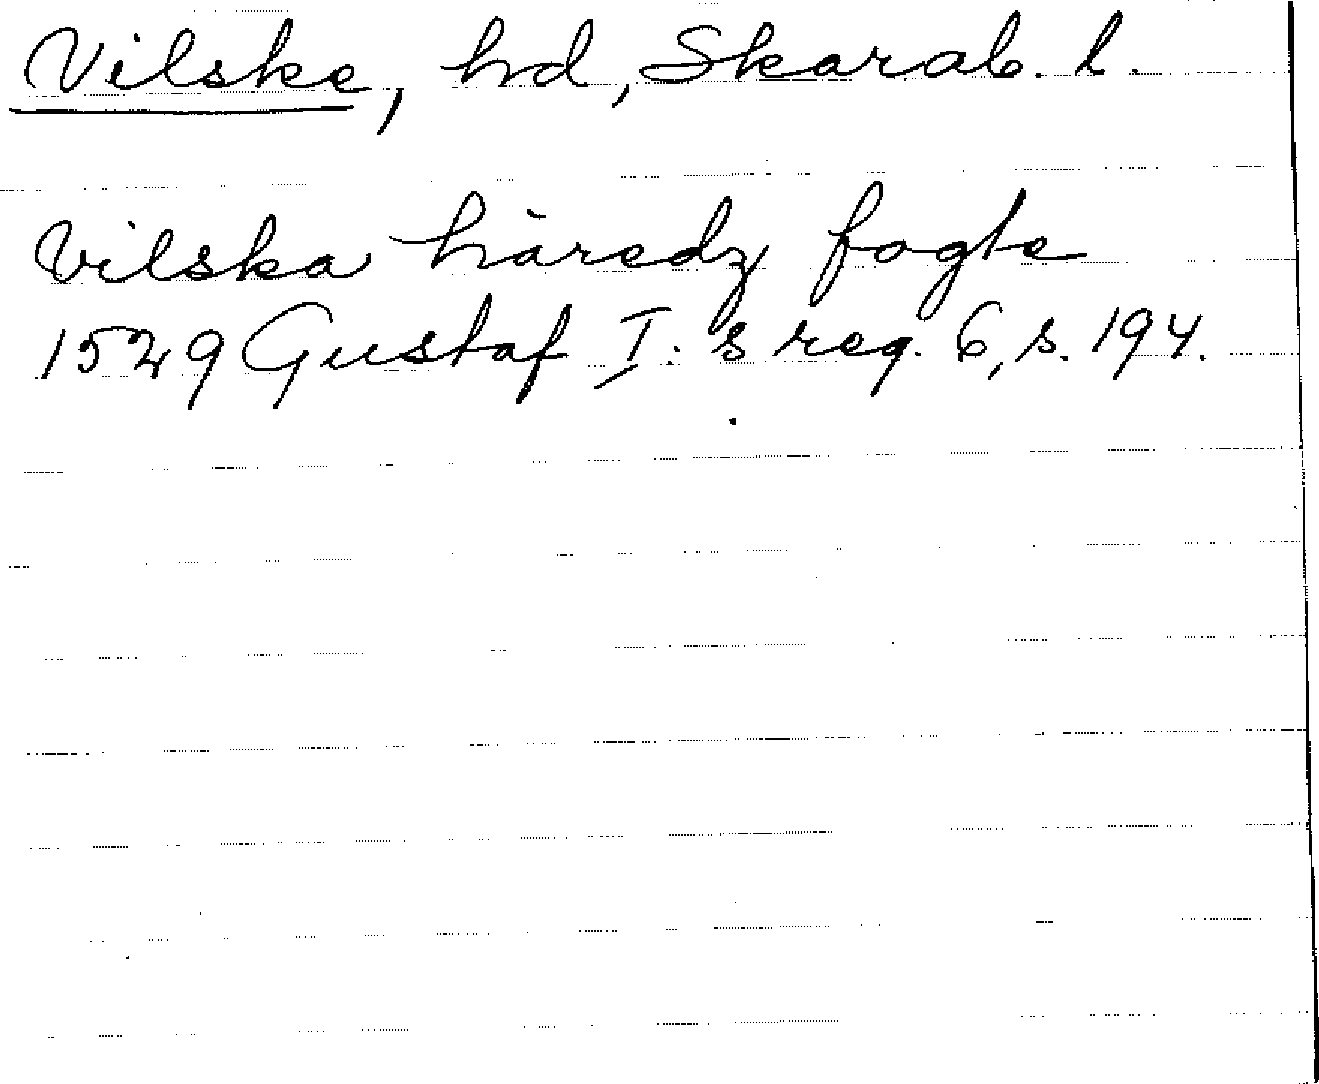 Vilske, hd, Skarab. l.
Vilska häredz fogte
1529 Gustaf I:s reg. 6, s. 194.